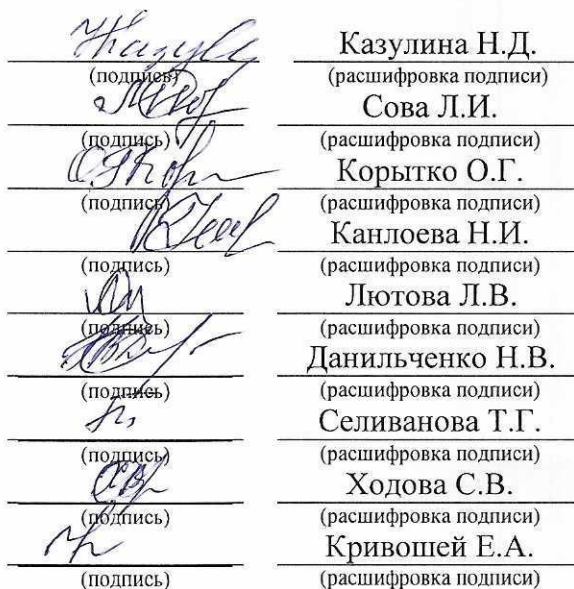 Казулина Н.Д.
(подпись) (расшифровка подписи)
Сова Л.И.
(подпись) (расшифровка подписи)
Корытко О.Г.
(подпись) (расшифровка подписи)
Канлоева Н.И.
(подпись) (расшифровка подписи)
Лютова Л.В.
(подпись) (расшифровка подписи)
Данильченко Н.В.
(подпись) (расшифровка подписи)
Селиванова Т.Г.
(подпись) (расшифровка подписи)
Ходова С.В.
(подпись) (расшифровка подписи)
Кривошей Е.А.
(подпись) (расшифровка подписи)